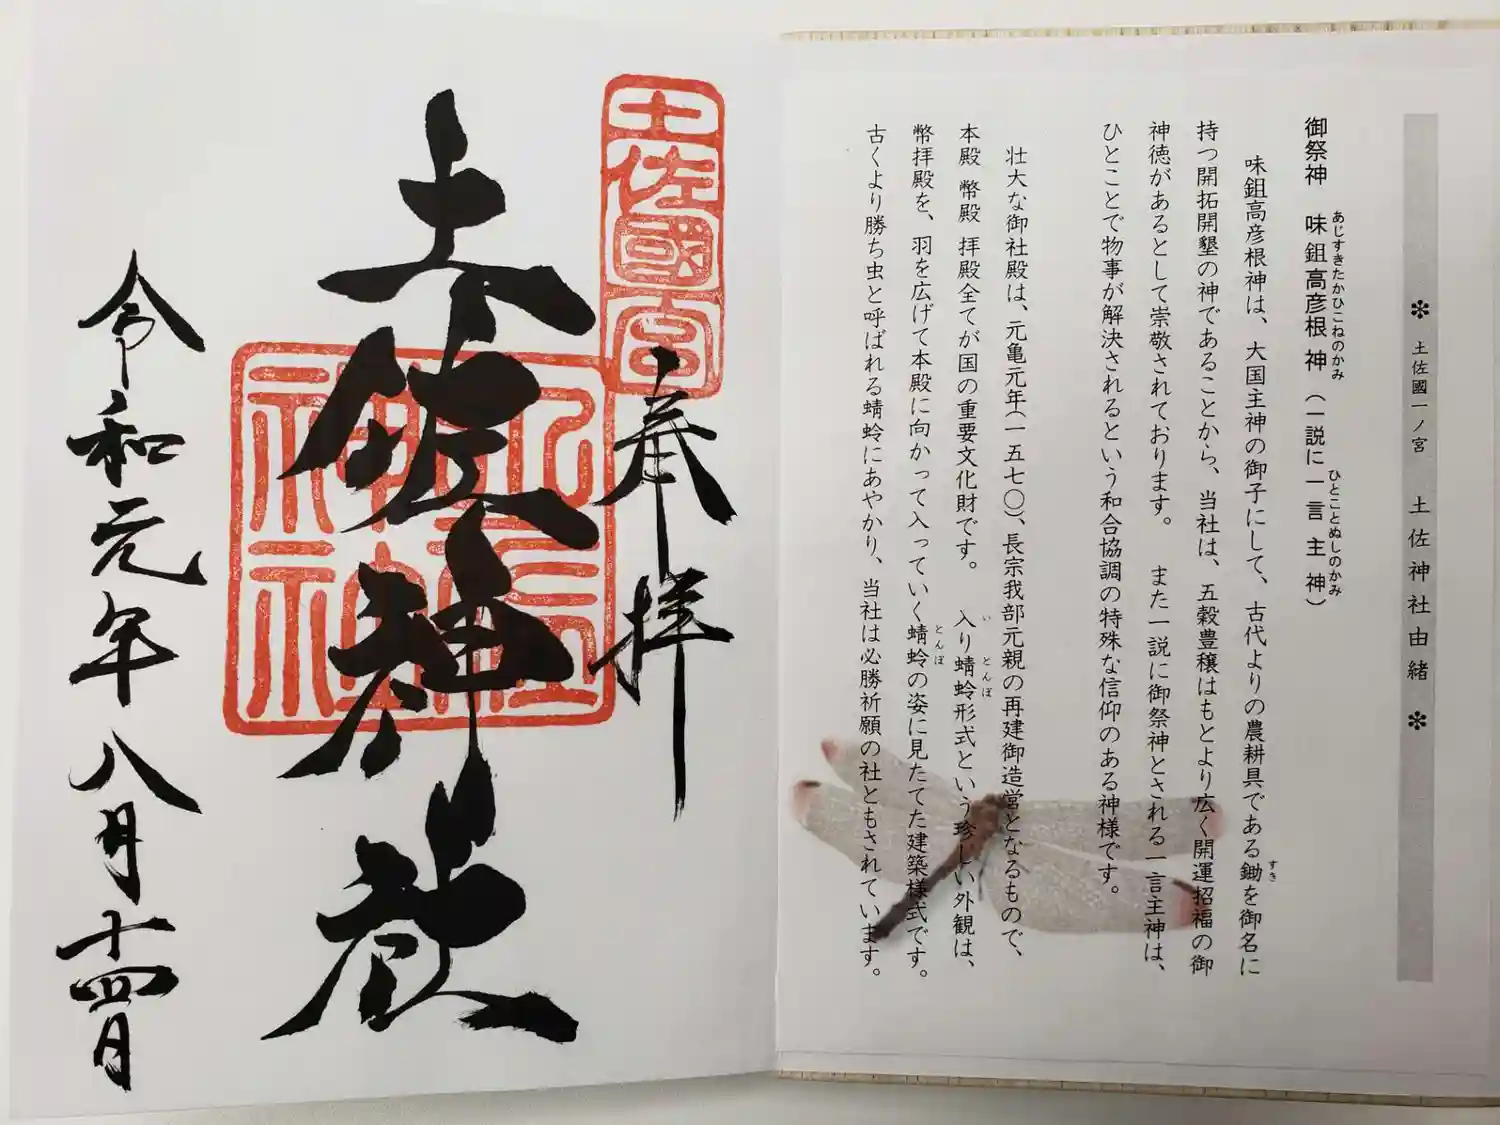 ❇ 土佐國一ノ宮 土佐神社由緒 ❇
御祭神 味鉏高彦根神(一説に一言主神)
あじすきたかひこねのかみ
ひとことぬしのかみ
味鉏高彦根神は、大国主神の御子にして、古代よりの農耕具である鋤を御名に
すき
持つ開拓開墾の神であることから、当社は、五穀豊穣はもとより広く開運招福の御
神徳があるとして崇敬されております。 また一説に御祭神とされる一言主神は、
ひとことで物事が解決されるという和合協調の特殊な信仰のある神様です。
壮大な御社殿は、元亀元年(一五七〇)、長宗我部元親の再建御造営となるもので、
本殿 幣殿 拝殿全てが国の重要文化財です。 入り蜻蛉形式という珍しい外観は、
い とんぼ
幣拝殿を、羽を広げて本殿に向かって入っていく蜻蛉の姿に見たてた建築様式です。
とんぼ
古くより勝ち虫と呼ばれる蜻蛉にあやかり、当社は必勝祈願の社ともされています。
土佐國一宮
奉拝
土佐神社
土佐神社
令和元年八月十四日